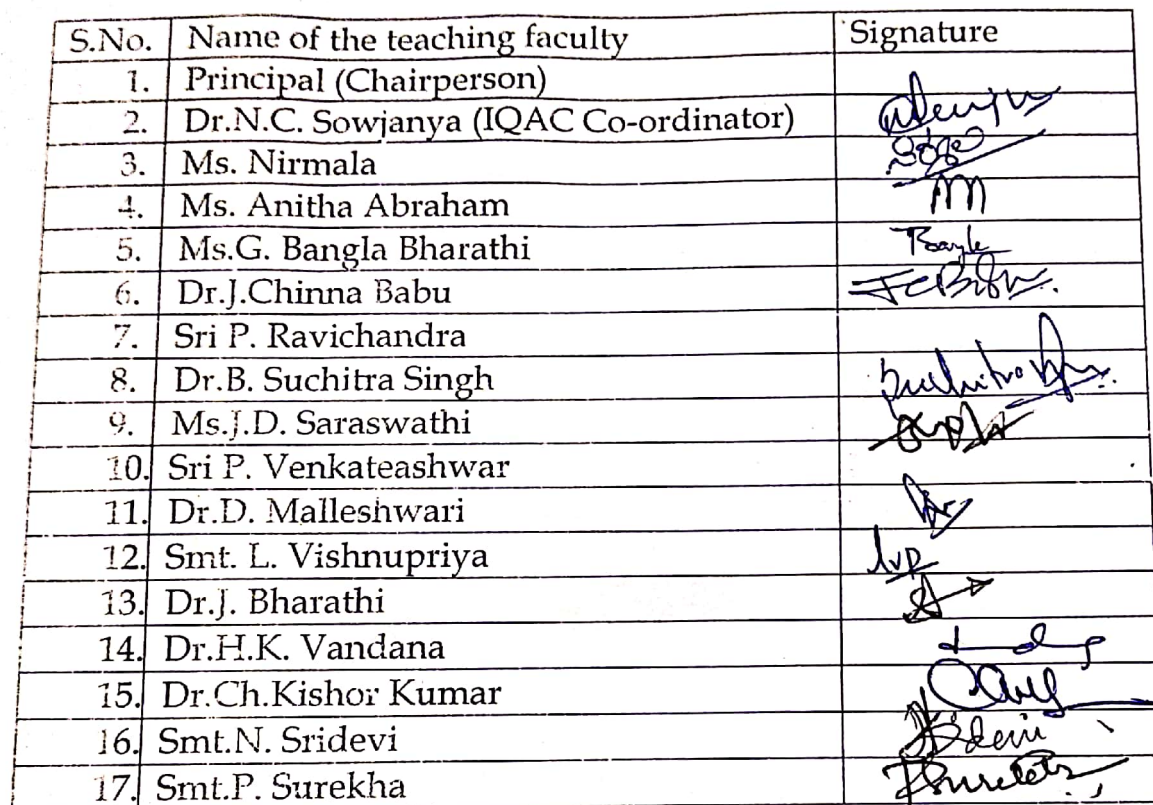 S.No. Name of the teaching faculty Signature
1. Principal (Chairperson)
2. Dr.N.C. Sowjanya (IQAC Co-ordinator)
3. Ms. Nirmala
4. Ms. Anitha Abraham
5. Ms.G. Bangla Bharathi
6. Dr.J.Chinna Babu
7. Sri P. Ravichandra
8. Dr.B. Suchitra Singh Suchitra
9. Ms.J.D. Saraswathi
10. Sri P. Venkateashwar
11. Dr.D. Malleshwari
12. Smt. L. Vishnupriya lvp
13. Dr.J. Bharathi
14. Dr.H.K. Vandana
15. Dr.Ch.Kishor Kumar
16. Smt.N. Sridevi
17. Smt.P. Surekha